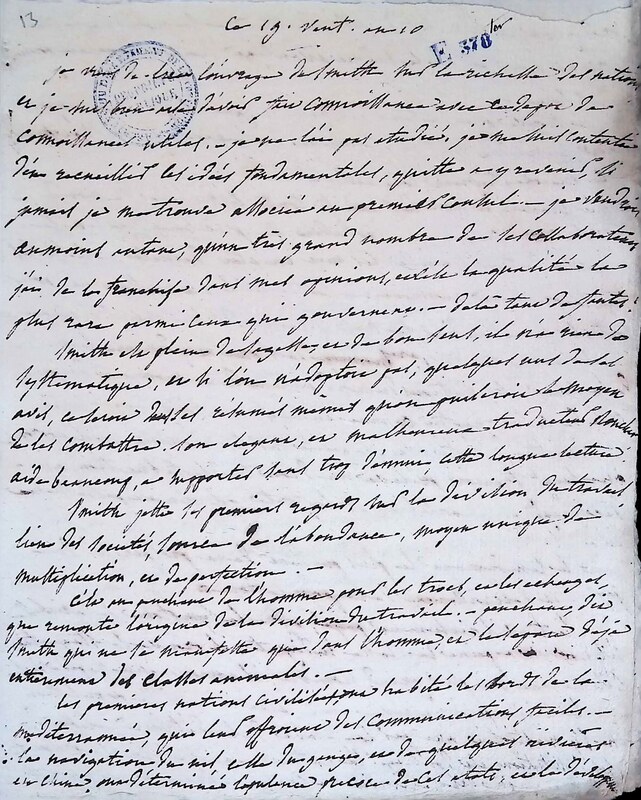 13
Ce 19. vent. an 10
E 378 ter
je viens de lire l'ouvrage de Smith sur la richesse des nations
et je me bien aise d'avoir fait connoissance avec ce depot de
connoissances utiles. – je ne l'ai pas etudié, je me suis contenté
d'en recueillir les idées fondamentales, quitte a y revenir, si
jamais je me trouve associée au premier Consul. – je vaudrois
au moins autant, qu'un très grand nombre de ses collaborateurs
j'ai de la franchise dans mes opinions, et c'est la qualité la
plus rare parmi ceux qui gouvernent. – de là tant de fautes.
Smith est plein de sagesse, et de bon sens, il n'a rien de
systematique, et si l'on n'adoptoit pas, quelques uns de ses
avis, ce seroit dans ses résumés mêmes qu'on puiseroit le moyen
de les combattre. son elegant, et malheureux traducteur Roucher
aide beaucoup, a supporter sans trop d'ennui, cette longue lecture
Smith jette ses premiers regards sur la division du travail
lien des societés, source de l'abondance, moyen unique de
multiplication, et de perfection. –
C'est au penchant de l'homme pour les trocs, et les echanges,
que remonte l'origine de la division du travail. – penchant, dit
Smith qui ne se manifeste que dans l'homme, et le sépare déjà
entierement des classes animales. –
les premieres nations civilisées ont habité les bords de la
mediterrannée, qui leur offroient des communications faciles. –
la navigation du nil, celle du gange, et de quelques rivieres
en Chine, ont déterminé l'opulence precoce de ces etats, et le